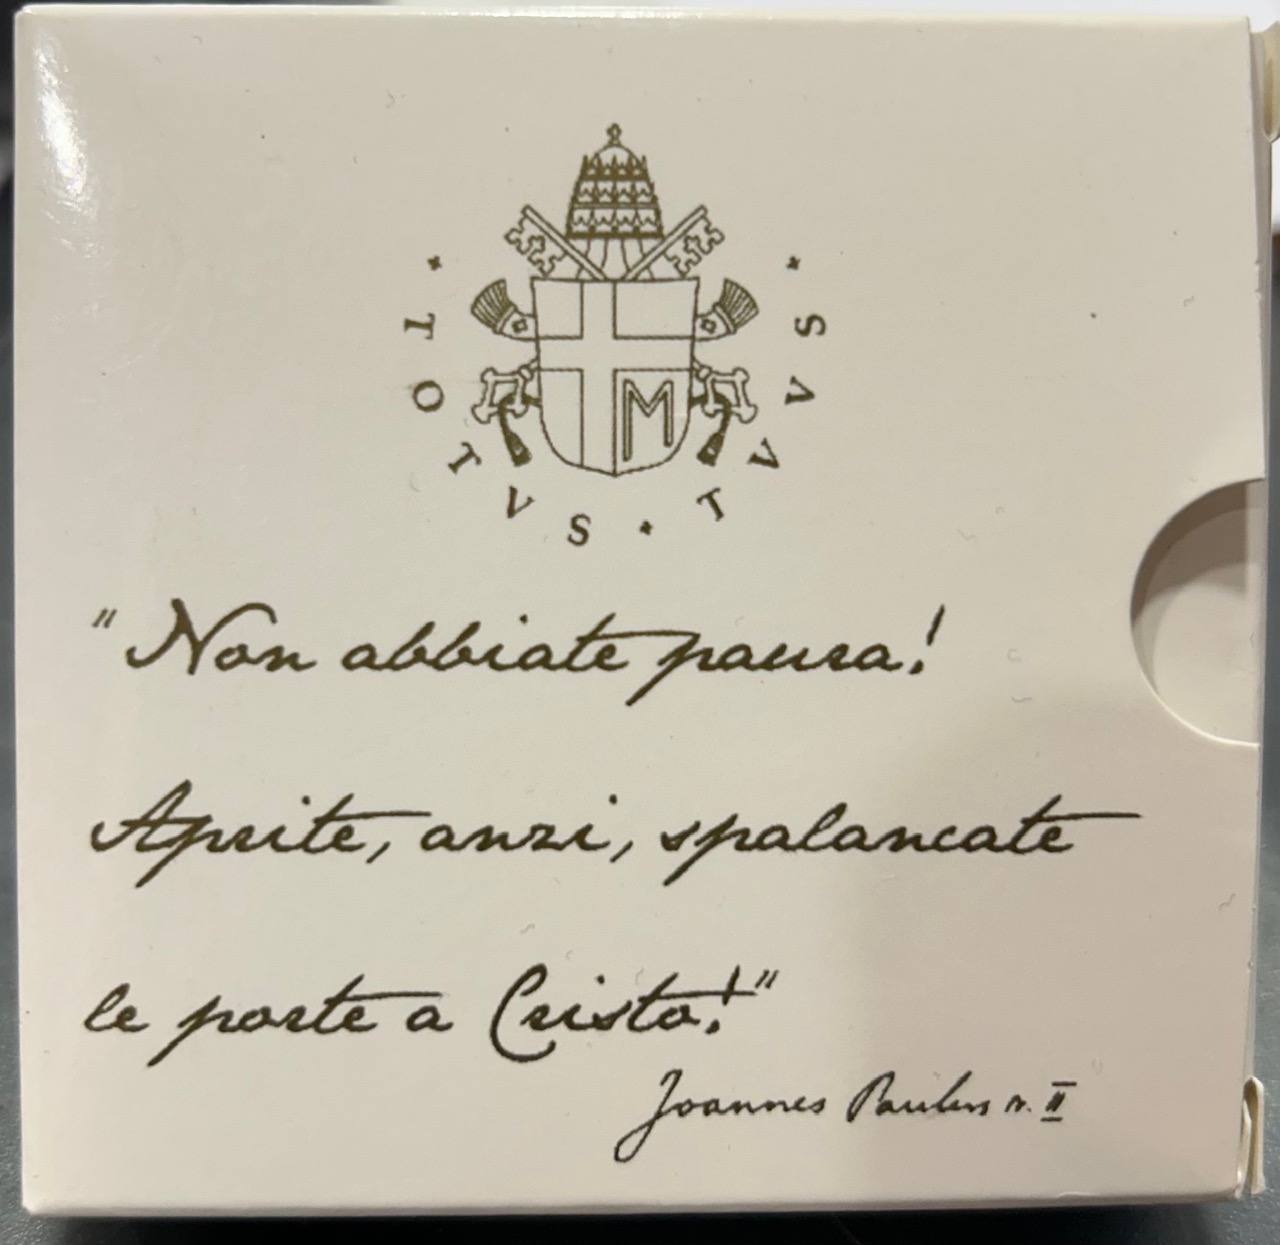 · TOTVS · TVVS ·
M
"Non abbiate paura!
Aprite, anzi, spalancate
le porte a Cristo!"
Joannes Paulus pp. II